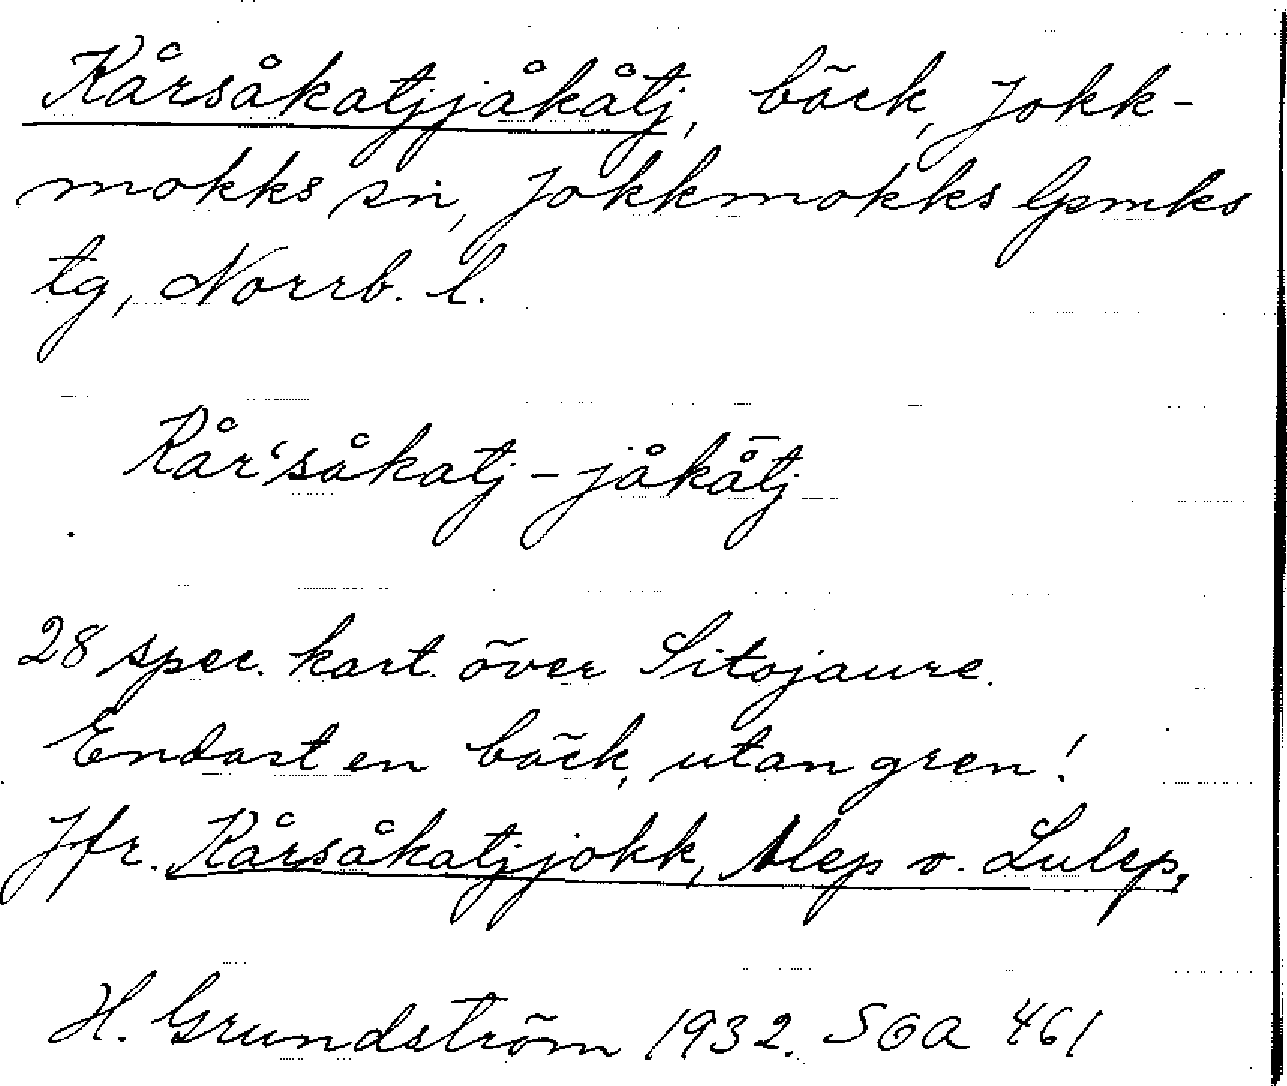 Kårsåkatjjåkåtj, bäck, Jokk-
mokks sn, Jokkmokks lpmks
tg, Norrb. l.
Kår'såkatj-jåkå̄tj
28 spec. kart. över Sitojaure.
Endast en bäck, utan gren!
Jfr. Kårsåkatjjokk, Alep o. Lulep,
H. Grundström 1932. SOA 461